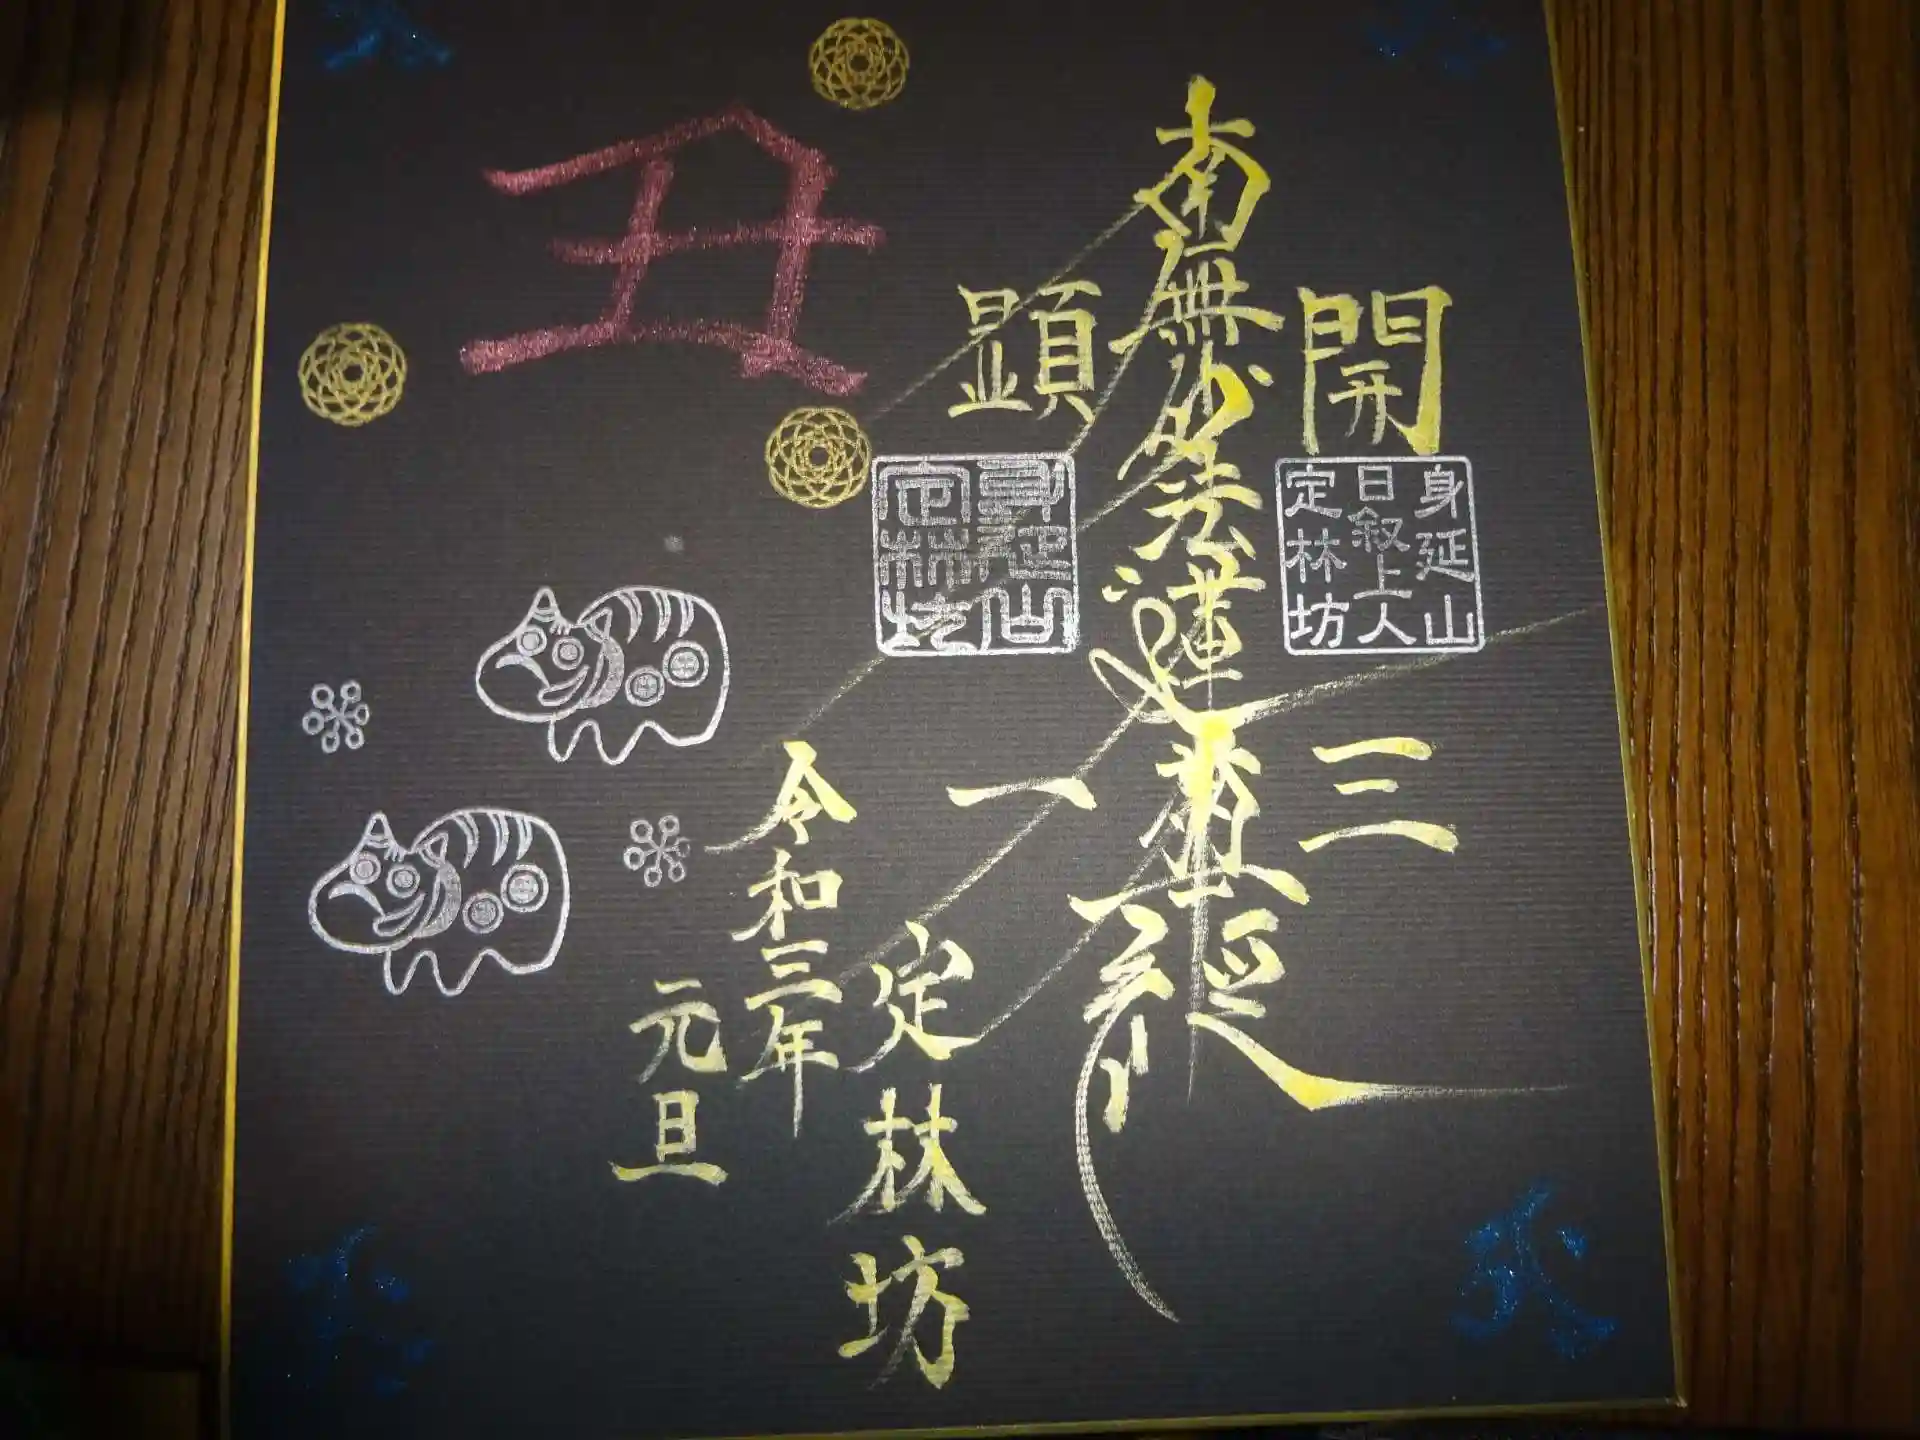 南無妙法蓮華経
開
三
顕
一
身延山
日叙上人
定林坊
身延山
定林坊
定林坊
令和三年
元旦
丑